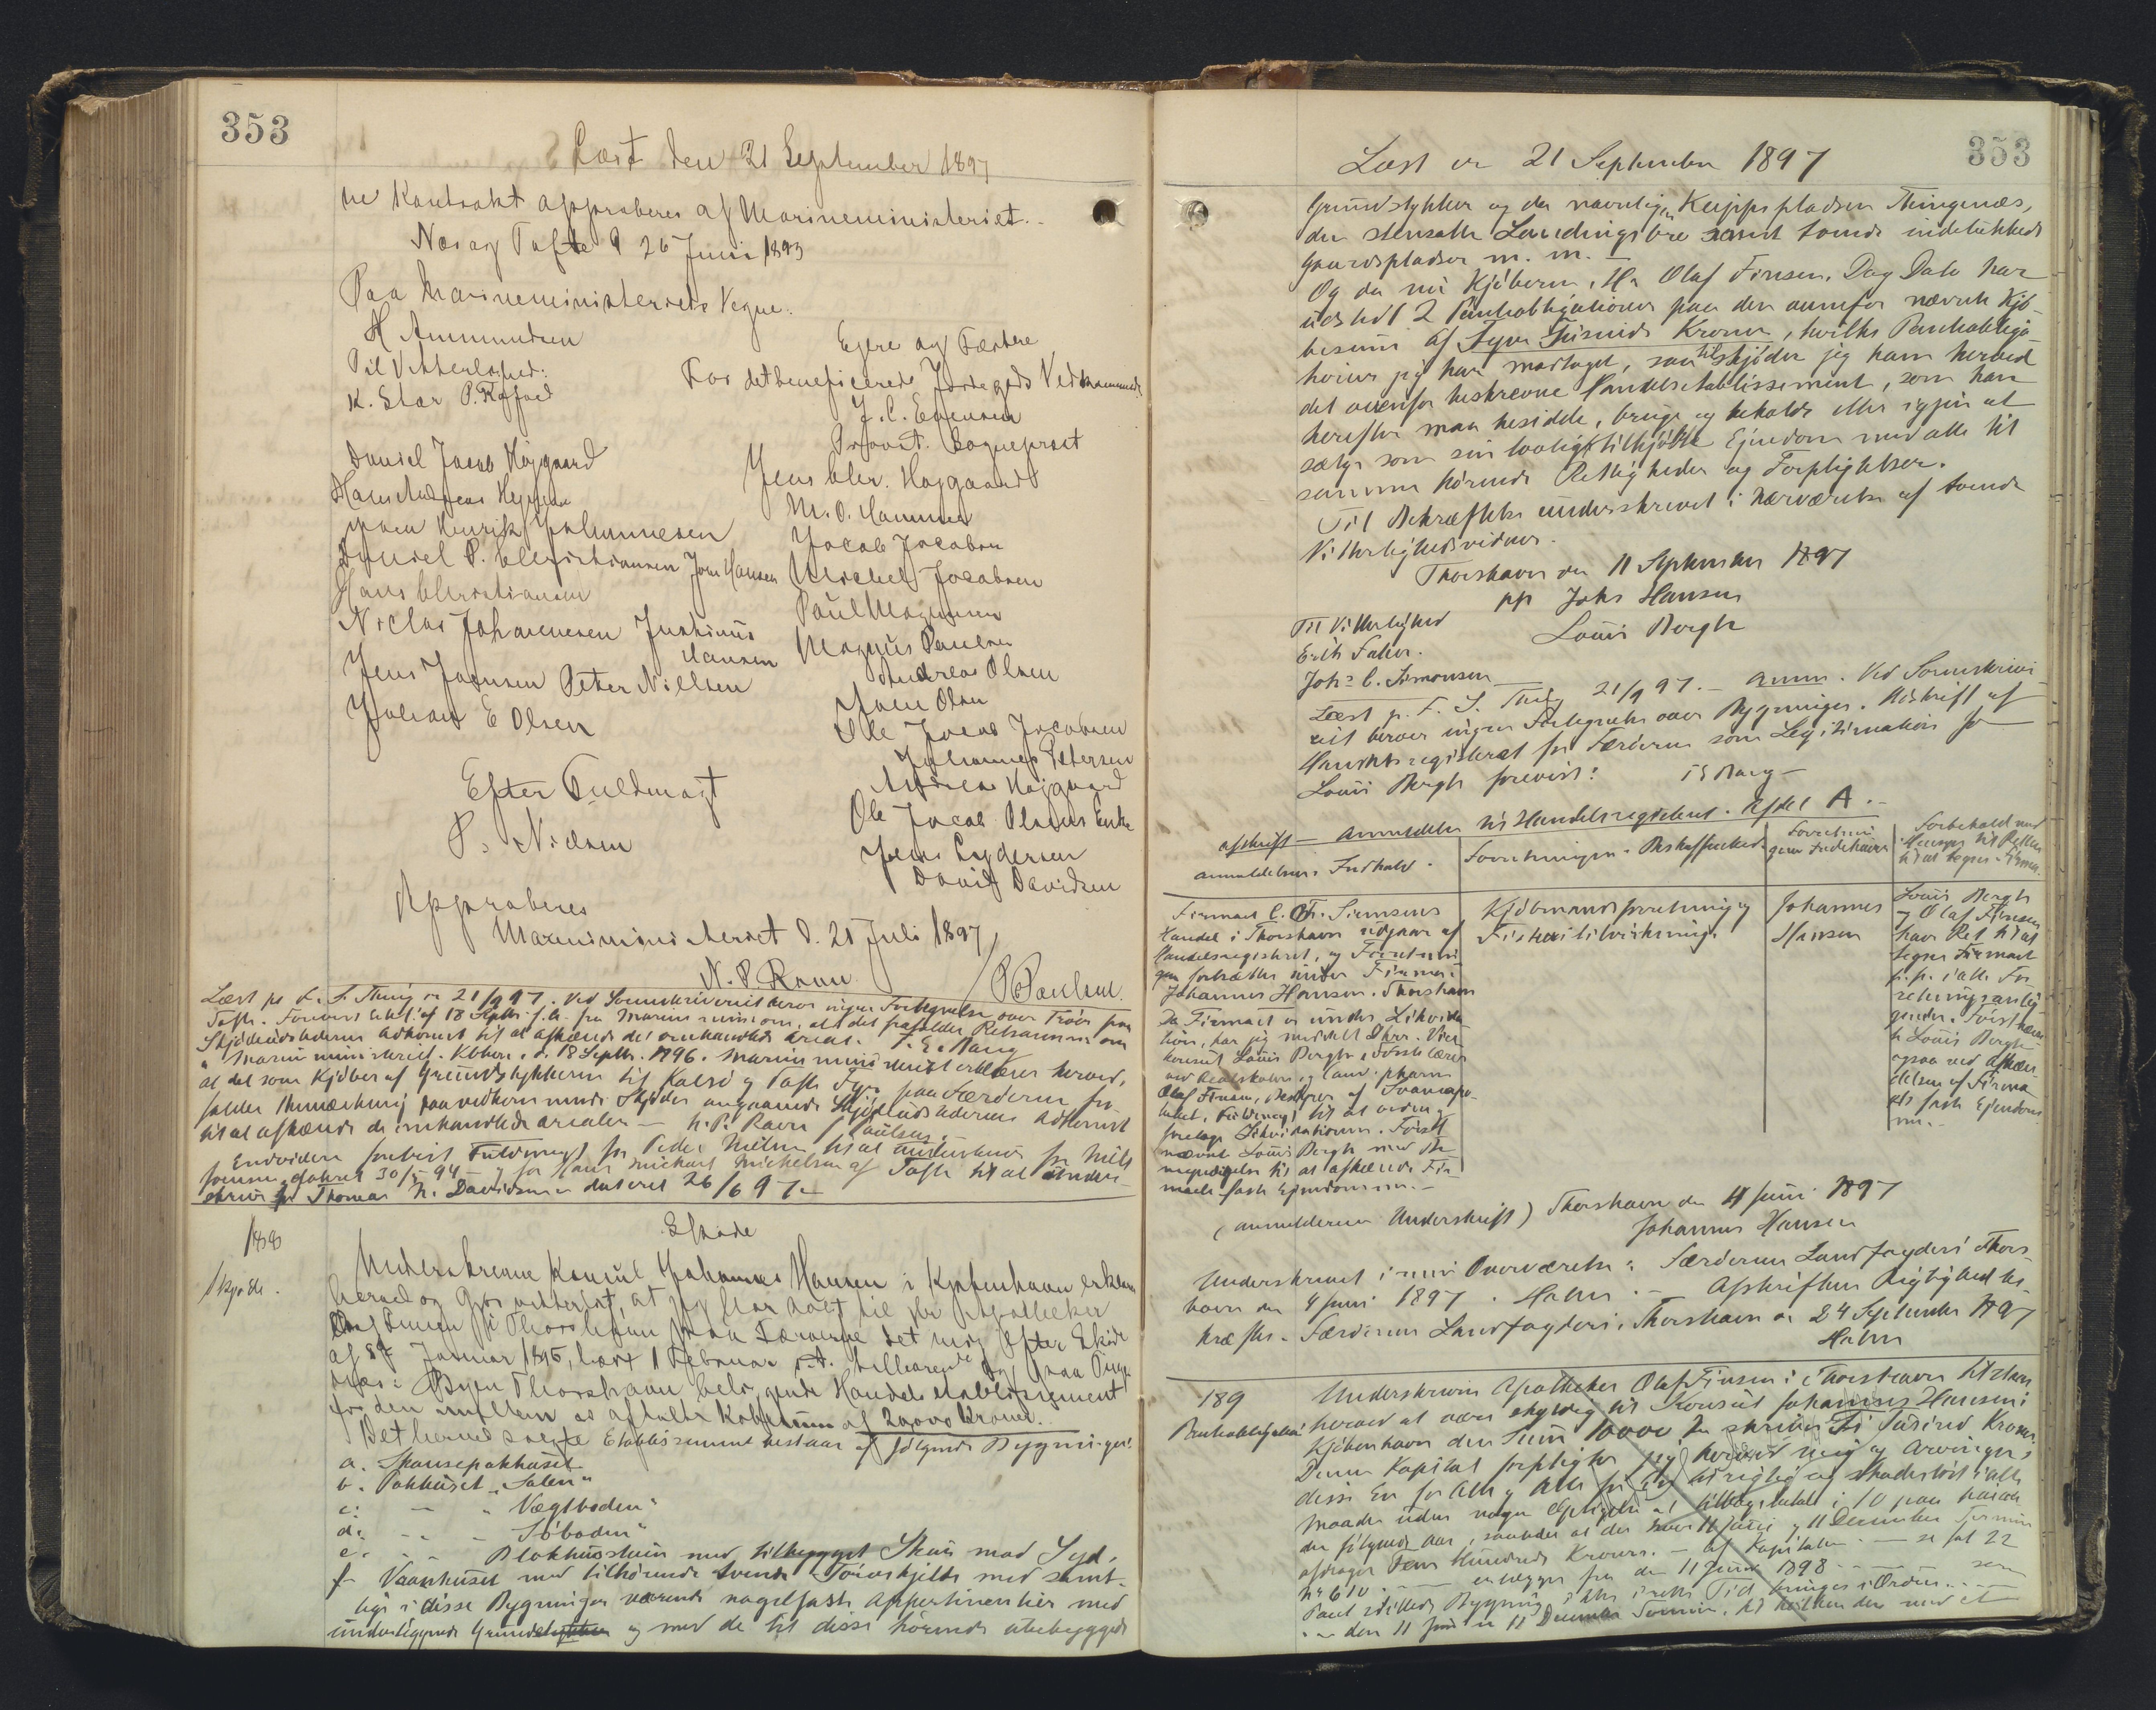 353
Læst den 21 September 1897
ne Kontrakt approberes af Marineministeriet.
Næs og Tofte d 26 Juni 1893
Paa Marineministeriets Vegne.
H Ammundsen
Til Vitterlighed:
K. Star P.
Ejere og Fæstere
For det beneficerede Jordegods Vedkommende
J. C. Evensen
Provst. Sognepræst
Daniel Jacob Højgaard
Hans Andreas
Joen Henrik Johannesen
Daniel P. Christiansen Joen Hansen
Hans Christiansen
Niclas Johannesen Justinus
Hansen
Jens Joensen Peter Nielsen
Johan E Olsen
Jens Chr. Højgaard
M. O. Hammer
Jacob Jacobsen
Michel Jacobsen
Paul Magnussen
Magnus Paulsen
Andreas Olsen
Joen Olsen
Ole Jacob Jacobsen
Johannes Petersen
Andreas Højgaard
Ole Jacob Olsens Enke
Jens Lydersen
David Davidsen
Efter Fuldmagt
P. Nielsen
Approberes
Marineministeriet d. 21 Juli 1897
N. P. Ravn
/ Paulsen.
Læst p. F. S. Thing 21/9 97. Ved Sorenskriveriet beror ingen Fortegnelse over
Tofte. Forevist af 18 Septbr. f.A. fra Marineministeriet, at det paafalder Retsanm. om
Skjødeudstederens Adkomst til at afhænde det omhandlede Areal. F. E. Bang
Marineministeriet. Kbhvn. d. 18 Septbr. 1896. Marineministeriet erklærer herved,
at det som Kjøber af Grundstykkerne til Kalsø og Tofte Fyr paa Færøerne fra-
falder Anmærkning paa vedkommende Skjøder angaaende Skjødeudstedernes Adkomst
til at afhænde de omhandlede Arealer — N. P. Ravn / Paulsen.
Endvidere forevist Fuldmagt for Peder Nielsen til at underskrive for Niels
Joensen dateret 30/5 94 — og for Hans Michael Michelsen af Tofte til at under-
skrive for Thomas N. Davidsen dateret 26/6 97 —
188
Skjøde.
Skjøde
Underskrevne Konsul Johannes Hansen i Kjøbenhavn erklærer
herved og gjør vitterligt, at jeg har solgt til Hr Apotheker
Olaf Finsen i Thorshavn paa Færøerne det mig efter Skjøde
af 8de Januar 1895, læst 1 Februar s. A. tilhørende og paa
i Byen Thorshavn beliggende Handelsetablissement
for den imellem os aftalte Købesum af 20,000 Kroner.
Det herved solgte Etablissement bestaar af følgende Bygninger:
a. Skansepakhuset
b. Pakhuset „Salen"
c. — „Vægtboden"
d. — — „Søboden"
e. — Blokhusstuen med tilbygget Skuur mod Syd.
f — Vaanhuset med tilhørende tvende med samt-
lige i disse Bygninger værende nagelfaste Appertinentier med
underliggende Grundstykker og med de til disse hørende ubebyggede
353
Læst den 21 September 1897
Grundstykker og da navnlig Klippepladsen Thinganæs,
den stensatte Landingsbro samt tvende indelukkede
Gaardspladser m. m. —
Og da nu Kjøberen, Hr Olaf Finsen, Dag Dato har
udstedt 2 Pantobligationer paa den ovenfor nævnte Kjø-
besum af Tyve Tusinde Kroner, hvilke Pantobliga-
tioner jeg har modtaget, saa tilskjøder jeg ham herved
det ovenfor beskrevne Handelsetablissement, som han
herefter maa besidde, bruge og beholde eller igjen at
sælge som sin lovligt tilkjøbte Ejendom med alle til
samme hørende Rettigheder og Forpligtelser.
Til Bekræftelse underskrevet i Nærværelse af tvende
Vitterlighedsvidner.
Thorshavn den 11 September 1897
pp Johs Hansen
Louis Bergh
Til Vitterlighed
Erik Falker.
Johs C. Simonsen
Læst p. F. S. Thing 21/9 97. — Anm. Ved Sorenskrive-
riet beroer ingen Fortegnelse over Bygninger. Udskrift af
Handelsregisteret for Færøerne som Legitimation for
Louis Bergh forevist: F E Bang —
Afskrift — Anmeldelse til Handelsregisteret. Afdel A. —
Anmeldelsens Indhold.
Forretningens Beskaffenhed
Forretnin-
gens Indehaver
Forbehold med
Hensyn til Retten
til at tegne Firma.
Firmaet C. Fr. Siemsens
Handel i Thorshavn udgaar af
Handelsregistret, og Forretnin-
gen fortsættes under Firma:
Johannes Hansen. Thorshavn
Da Firmaet er under Likvida-
tion, har jeg meddelt Dhrr. Vice-
konsul Louis Bergh, Første lærer
ved Realskolen og Cand. pharm
Olaf Finsen, Bestyrer af Svaneapo-
theket, Fuldmagt til at ordne og
foretage Likvidationen. Først-
nævnte Louis Bergh med Be-
myndigelse til at afhænde Fir-
maets faste Ejendomme. —
Kjøbmandsforretning og
Fisketilvirkning.
Johannes
Hansen
Louis Bergh
og Olaf Finsen
have Ret til at
tegne Firmaet
p. p. i alle For-
retningsanlig-
gender. Førstnævn-
te Louis Bergh
ogsaa ved Afhæn-
delsen af Firma-
ets faste Ejendom-
me. —
(Anmelderens Underskrift) Thorshavn den 4 Juni 1897
Johannes Hansen
Underskrevet i min Overværelse: Færøernes Landfogderi Thors-
havn den 4 Juni 1897. Hahn. — Afskriftens Rigtighed be-
kræftes. Færøernes Landfogderi, Thorshavn d. 24 September 1897
Hahn
189
Pantobligation:
Underskrevne Apotheker Olaf Finsen i Thorshavn tilstaar
herved at være skyldig til Konsul Johannes Hansen i
Kjøbenhavn den Sum 10000 Kr skriver Ti Tusind Kroner.
Denne Kapital forpligter jeg herved mig og Arvinger,
disse En for Alle og Alle for En, at rigtig og skadesløst i alle
Maader uden nogen Opsigelse at tilbagebetale i 10 paa hinanden
følgende Aar, saaledes at der hver 11 Juni og 11 December Termin
afdrages Fem Hundrede Kroner. — af Kapitalen — se fol 22
N° 610. — erlægges fra den 11 Juni 1898 —
Pant stillede Bygning i rette Tid bringes i Orden. —
den 11 Juni og 11 December Termin,